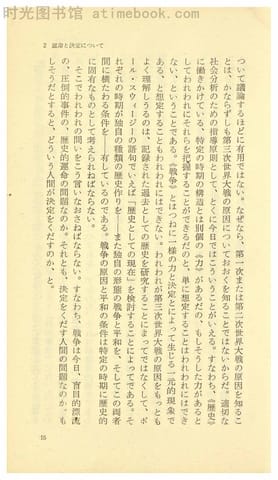 时光图书馆 atimebook.com
2 運命と決定について
ついて議論するほどに有用ではない。なぜなら、第一次または第二次世界大戦の原因を知るこ
とは、かならずしも第三次世界大戦の原因についておおくを知ることではないからだ。適切な
社会分析のための指導原則として、とくに今日ではこういうことがいえる。すなわち、《歴史》
に働きかけている、特定の時期の構造とは別個の《力》があるとし、もしそうした力があると
してわれわれにそれらを把握することができるのだと、単に想定することはわれわれにはでき
ない、ということである。《戦争》とはつねに一様の力と決定とによって生じる一元的現象で
ある、と想定することもわれわれにはできない。われわれが第三次世界大戦の原因をもっとも
よく理解しうるのは、記録された過去としての歴史を研究することによってではなくして、ポ
ール・スウィージーの語句でいえば「歴史としての現在」を検討することによってである。そ
れぞれの時期が独自の種類の歴史作りを――また独自の形態の戦争と平和を、そしてこの両者
間に横たわる条件を――有しているのである。戦争の原因と平和の条件は特定の時期に歴史的
に固有なものとして考えられねばならない。
そこでわれわれの問いをこう言いなおさねばならない。すなわち、戦争は今日、盲目的漂流
の、圧倒的事件の、歴史的運命の問題なのか。それとも、決定をくだす人間の問題なのか。も
しそうだとすると、どういう人間が決定をくだすのか、と。
15